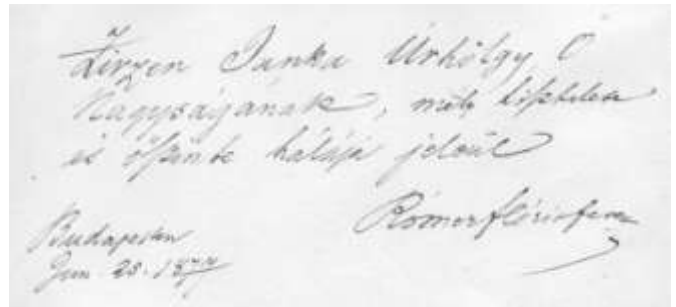 Zirzen Janka Úrhölgy Ő
Nagyságának, mély tisztelete
és őszinte hálája jeléül
Rómer Flóris Ferencz
Budapesten
Jun. 28. 1877